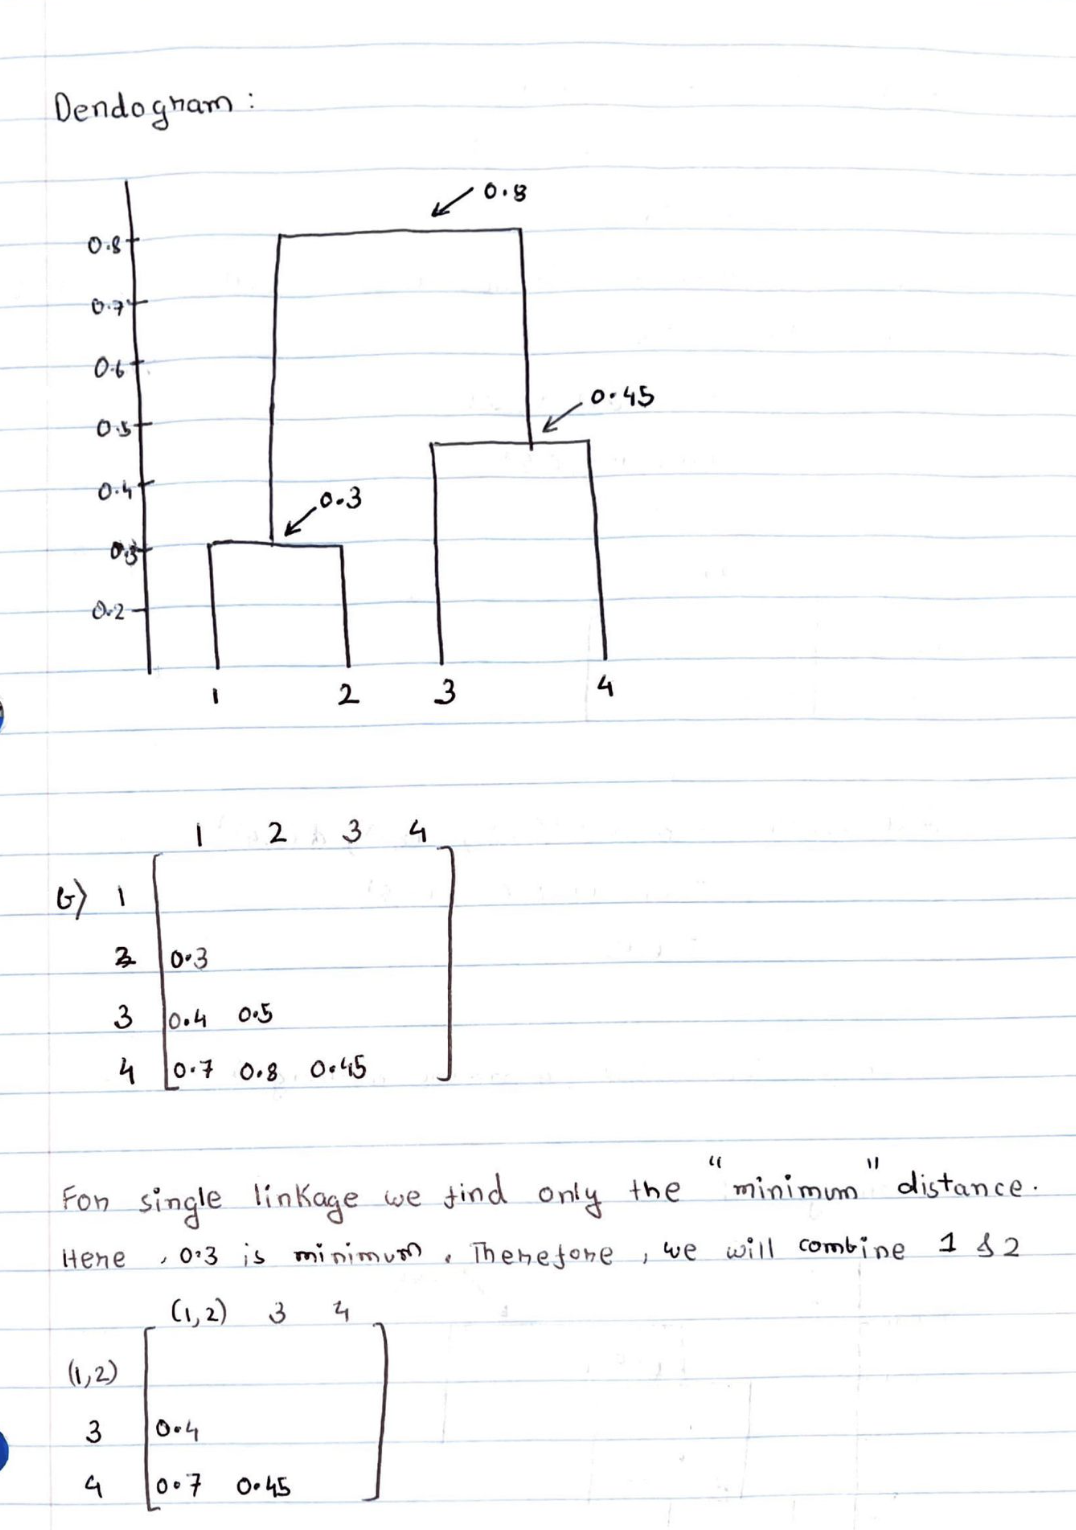 Dendogram :
0.8
0.8
0.7
0.6
0.45
0.5
0.4
0.3
0.3
0.2
1 2 3 4
1 2 3 4
b) 1
2 0.3
3 0.4 0.5
4 0.7 0.8 0.45
For single linkage we find only the "minimum" distance.
Here , 0.3 is minimum . Therefore , we will combine 1 & 2
(1,2) 3 4
(1,2)
3 0.4
4 0.7 0.45